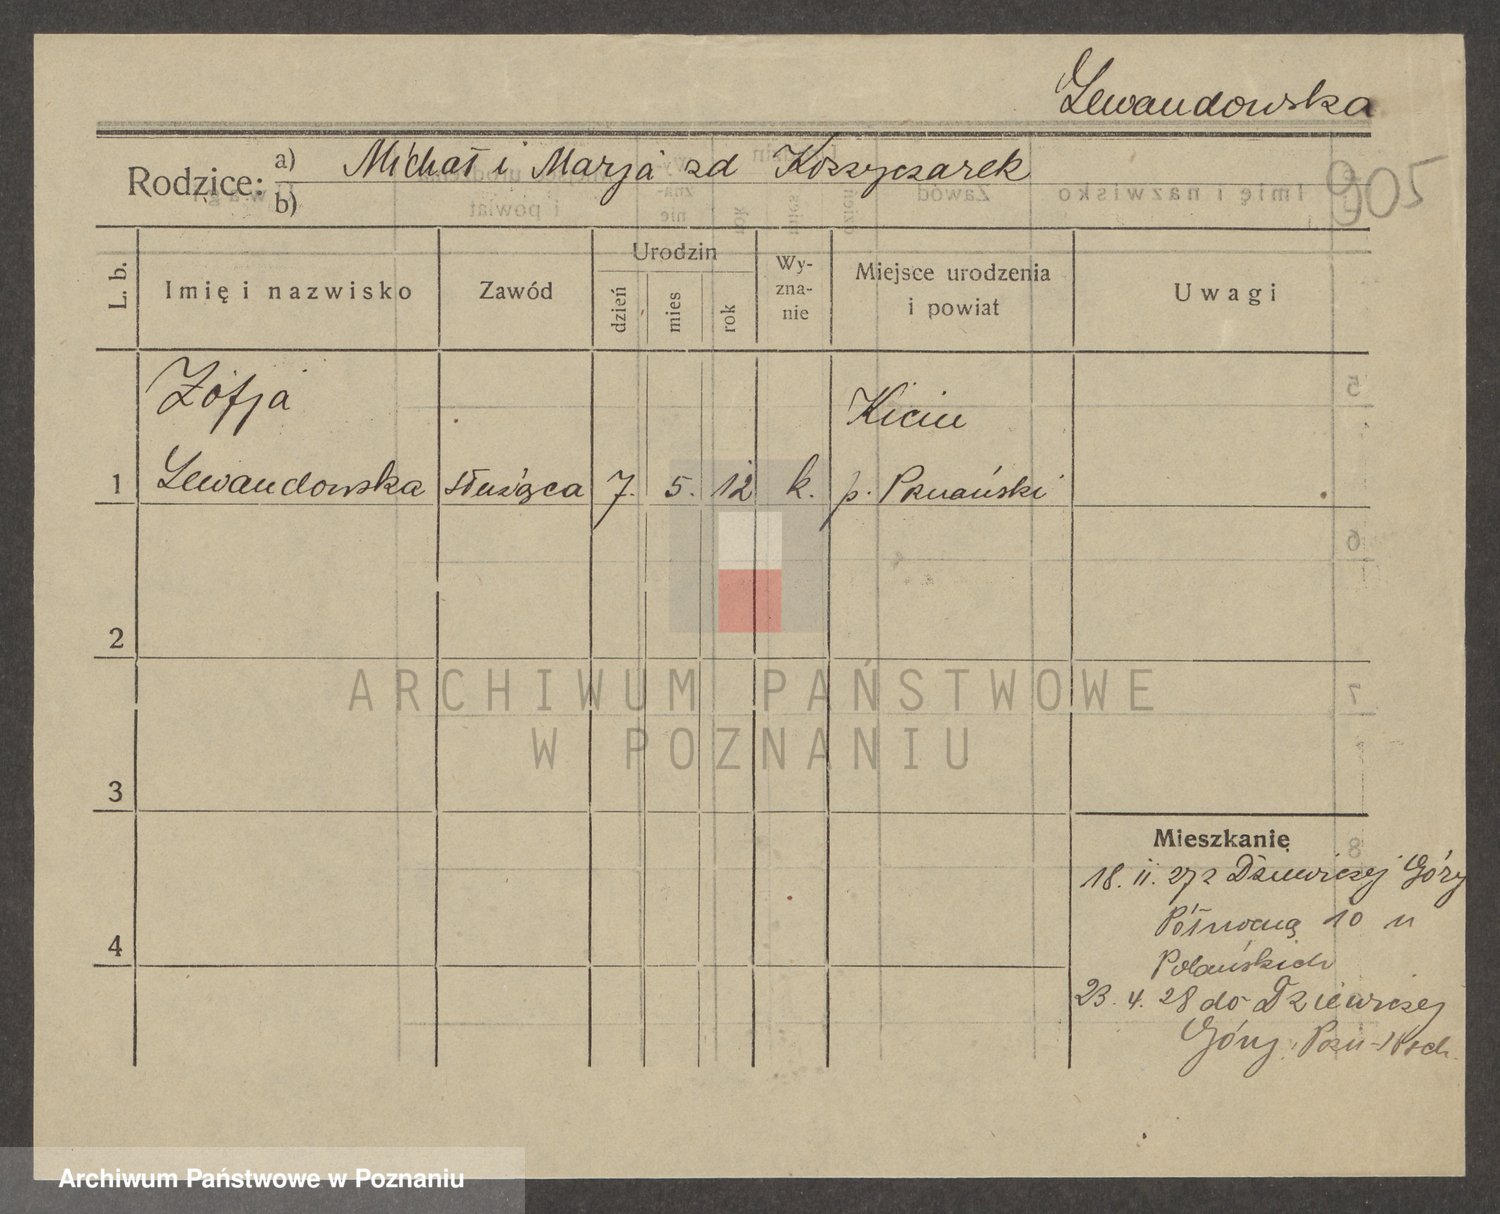 Lewandowska
Rodzice: a) Michał i Marja zd Koszyczarek
b)
905
L. b.
Imię i nazwisko
Zawód
Urodzin
dzień
mies
rok
Wy-
zna-
nie
Miejsce urodzenia
i powiat
Uwagi
Zofja
Kicin
1 Lewandowska służąca 7. 5. 12 k. p. Poznański
2
3
4
ARCHIWUM PAŃSTWOWE
W POZNANIU
Mieszkanie
18. 11. 27 z Dziewiczej Góry
Północną 10 u
Polańskich
23. 4. 28 do Dziewiczej
Góry. Pozn-Wsch.
Archiwum Państwowe w Poznaniu